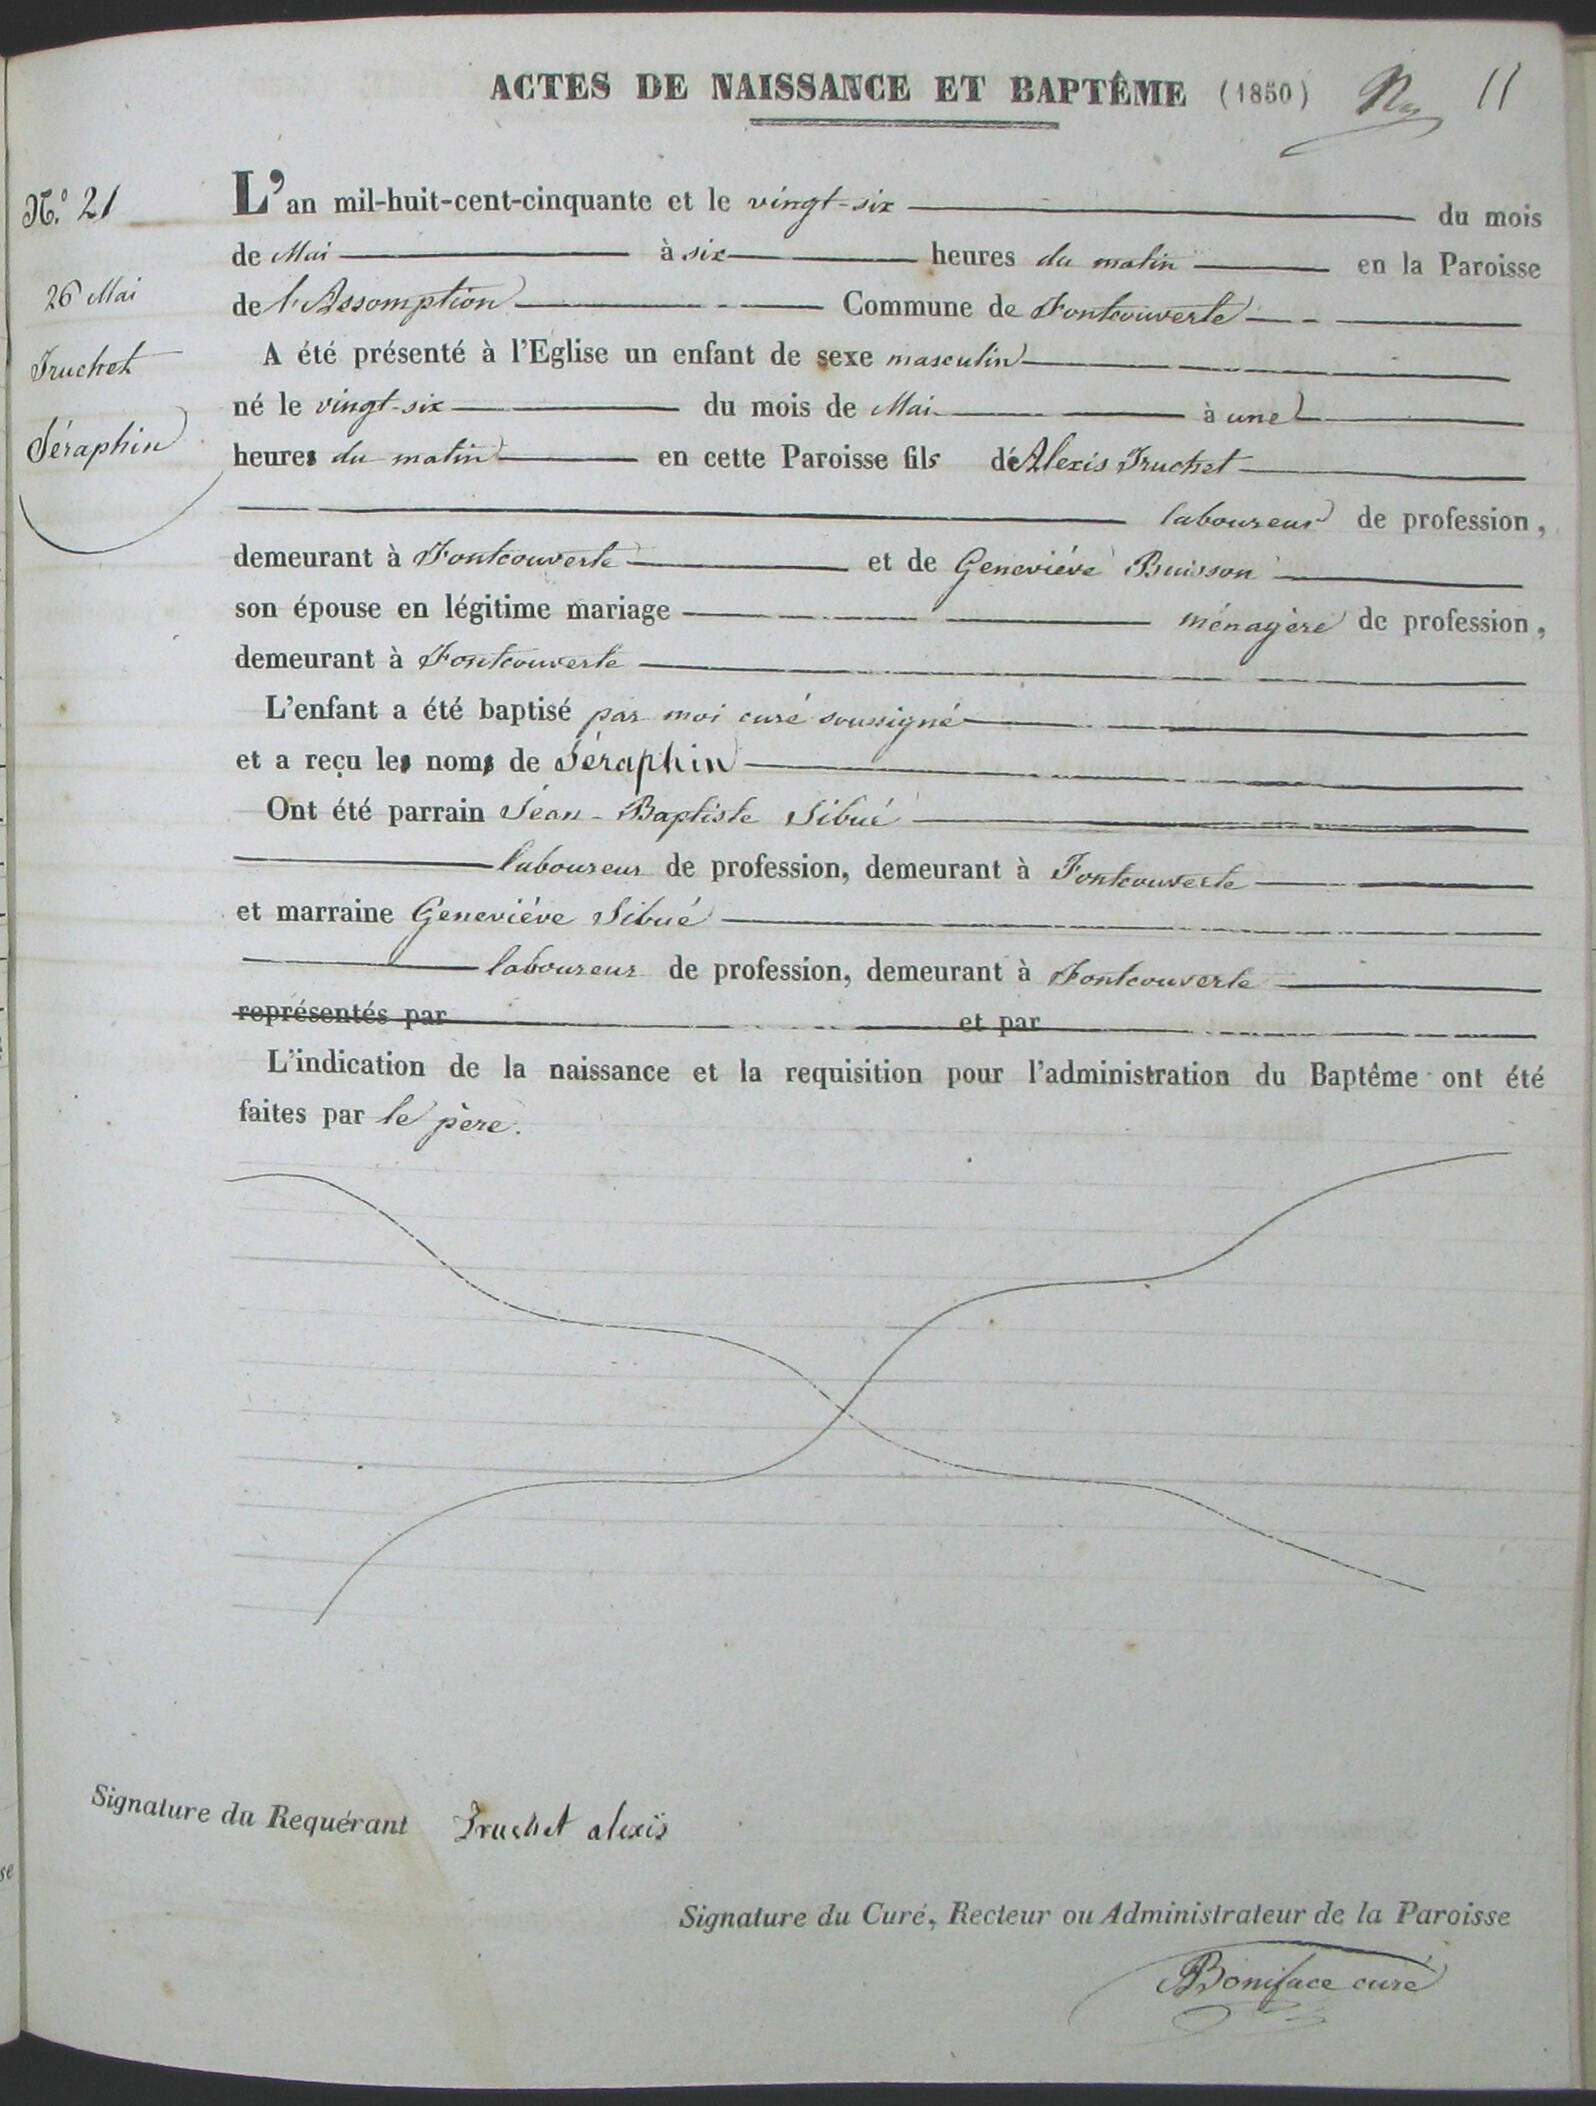 ACTES DE NAISSANCE ET BAPTÊME (1850) 11
N.º 21
26 Mai
Truchet
Séraphin
L'an mil-huit-cent-cinquante et le vingt-six du mois
de Mai à six heures du matin en la Paroisse
de l'Assomption Commune de Fontcouverte
A été présenté à l'Église un enfant de sexe masculin
né le vingt-six du mois de Mai à une
heures du matin en cette Paroisse fils d'Alexis Truchet
laboureur de profession,
demeurant à Fontcouverte et de Geneviéve Buisson
son épouse en légitime mariage ménagère de profession,
demeurant à Fontcouverte
L'enfant a été baptisé par moi curé soussigné
et a reçu les noms de Séraphin
Ont été parrain Jean-Baptiste Sibué
laboureur de profession, demeurant à Fontcouverte
et marraine Geneviéve Sibué
laboureur de profession, demeurant à Fontcouverte
représentés par et par
L'indication de la naissance et la requisition pour l'administration du Baptême ont été
faites par le père.
Signature du Requérant Truchet alexis
Signature du Curé, Recteur ou Administrateur de la Paroisse
Boniface curé